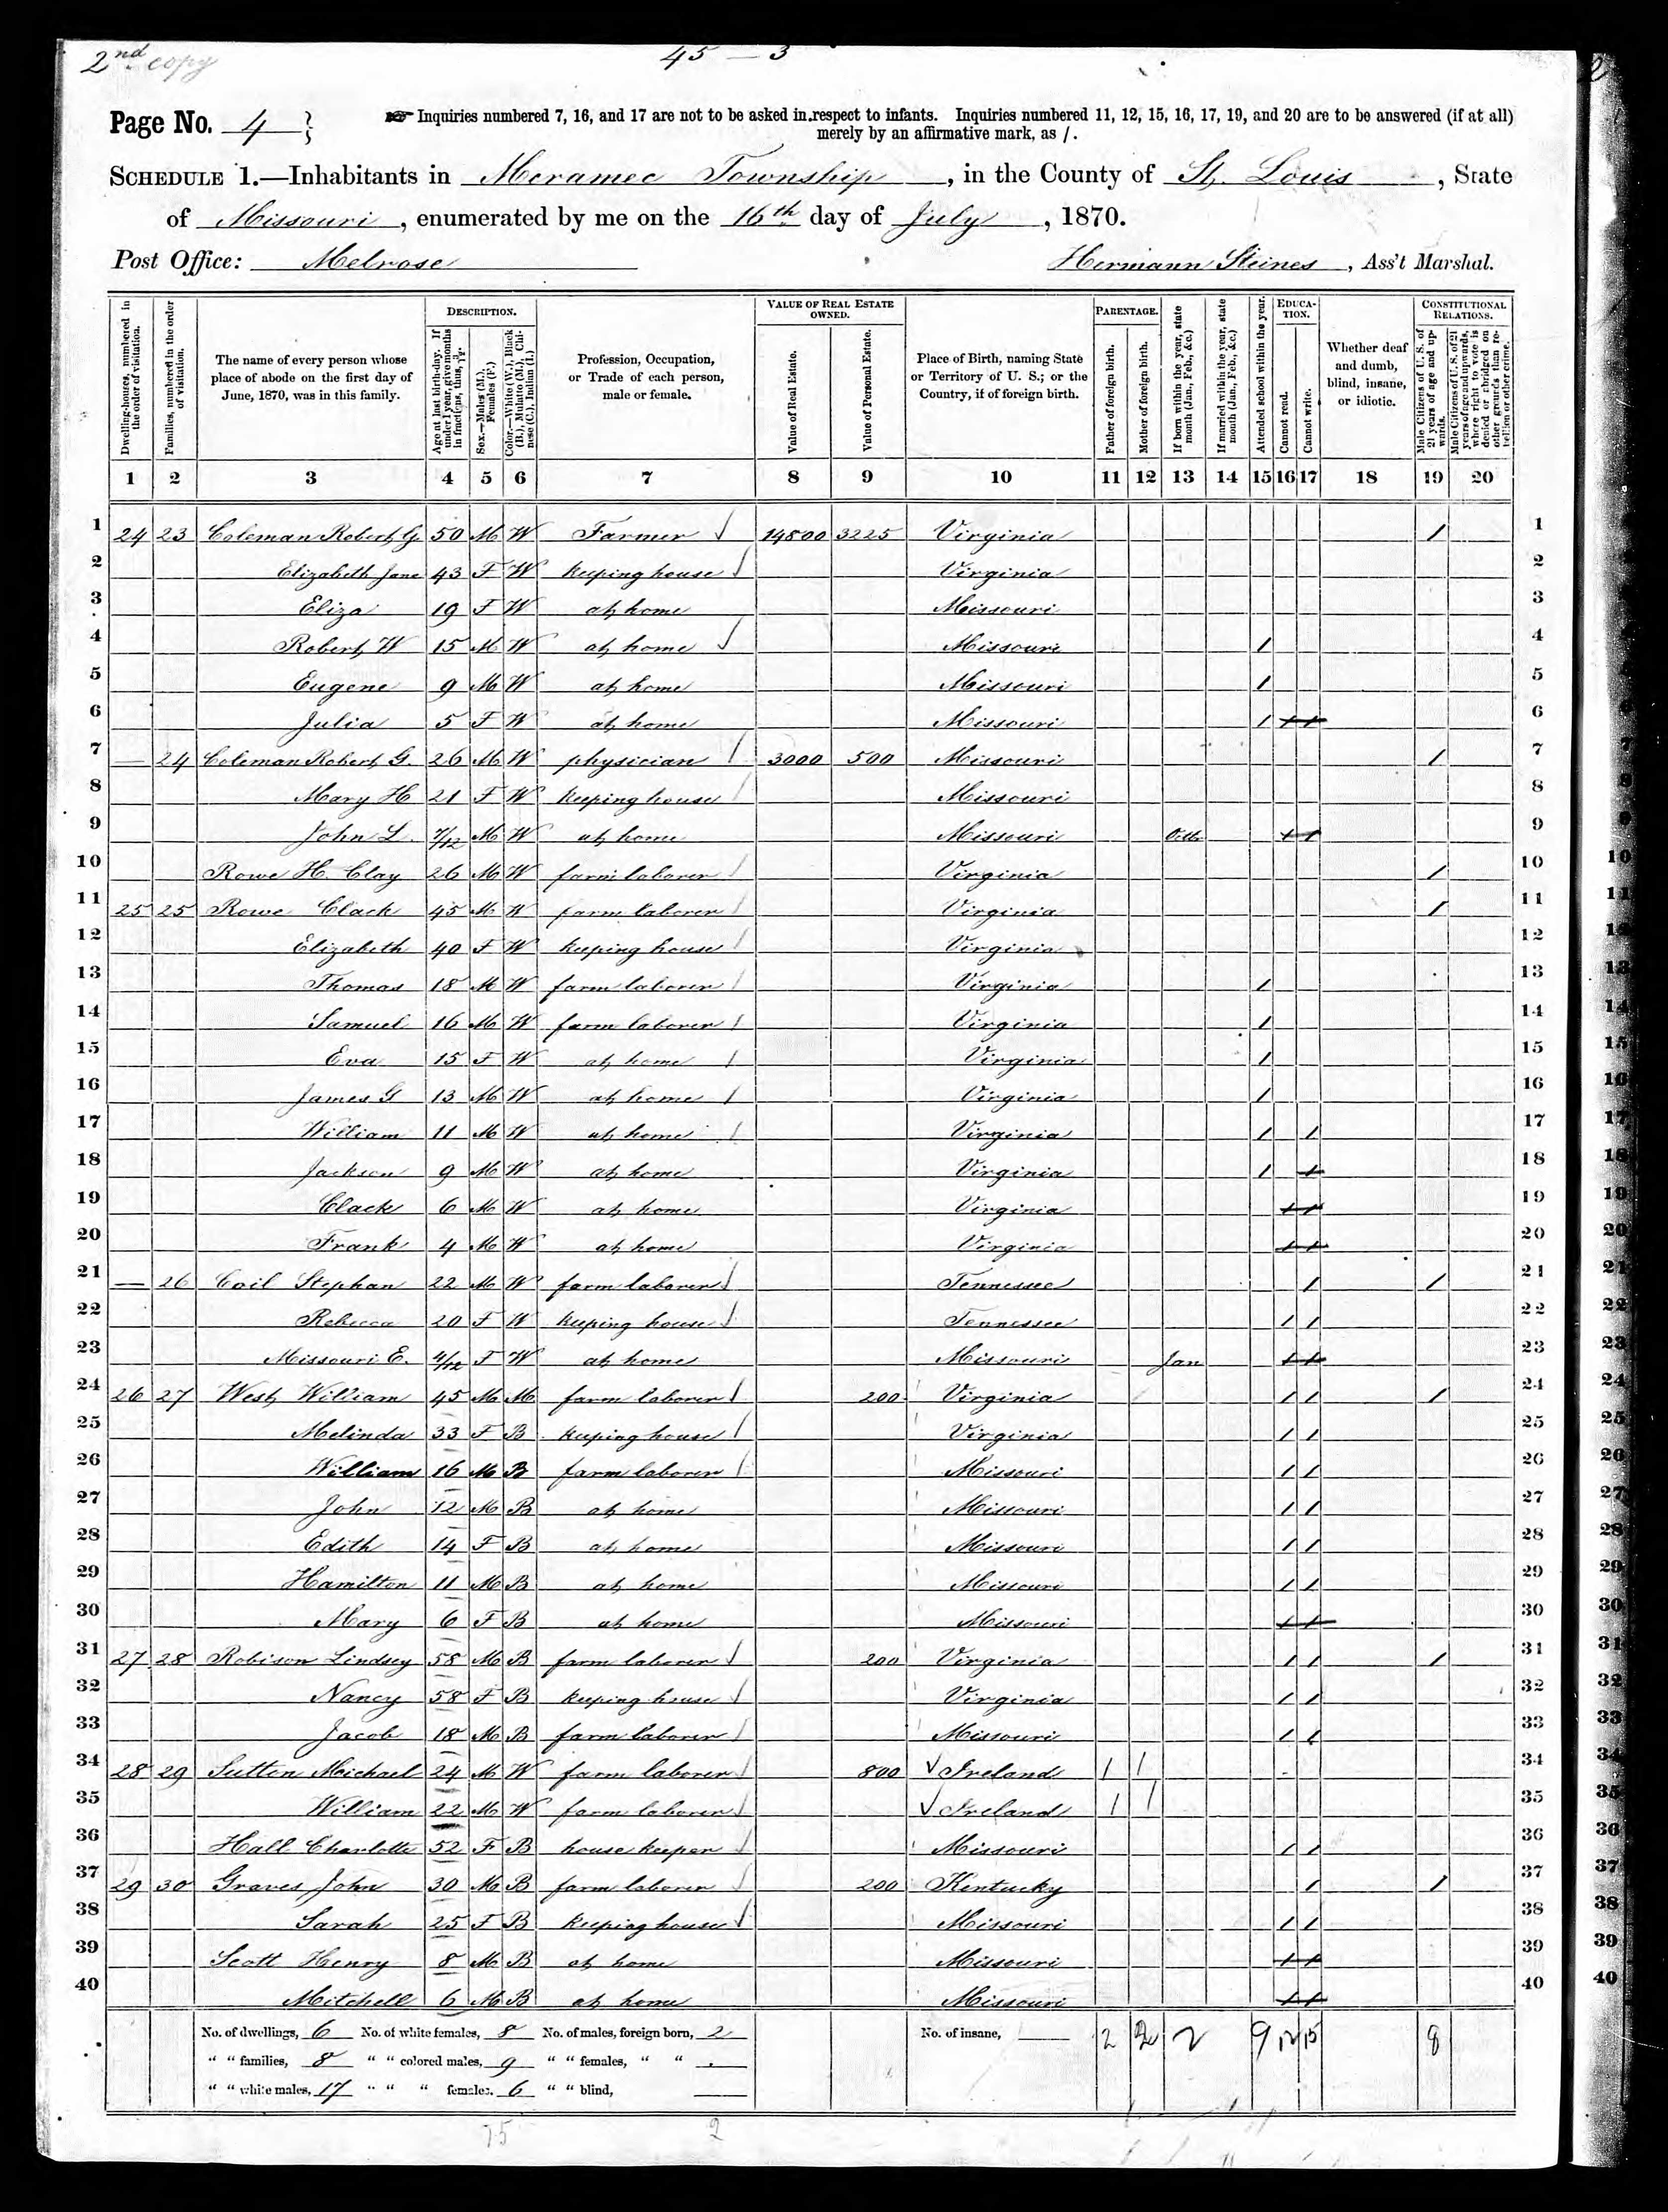 2nd copy
45 — 3
Page No. 4
Inquiries numbered 7, 16, and 17 are not to be asked in respect to infants. Inquiries numbered 11, 12, 15, 16, 17, 19, and 20 are to be answered (if at all)
merely by an affirmative mark, as /.
SCHEDULE 1.—Inhabitants in Meramec Township, in the County of St. Louis, State
of Missouri, enumerated by me on the 16th day of July, 1870.
Post Office: Melrose Hermann Steines, Ass't Marshal.
Dwelling-houses, numbered in the order of visitation.
Families, numbered in the order of visitation.
The name of every person whose place of abode on the first day of June, 1870, was in this family.
DESCRIPTION.
Age at last birth-day. If under 1 year, give months in fractions, thus, 3/12.
Sex.—Males (M.), Females (F.)
Color.—White (W.), Black (B.), Mulatto (M.), Chinese (C.), Indian (I.)
Profession, Occupation, or Trade of each person, male or female.
VALUE OF REAL ESTATE OWNED.
Value of Real Estate.
Value of Personal Estate.
Place of Birth, naming State or Territory of U. S.; or the Country, if of foreign birth.
PARENTAGE.
Father of foreign birth.
Mother of foreign birth.
If born within the year, state month (Jan., Feb., &c.)
If married within the year, state month (Jan., Feb., &c.)
Attended school within the year.
EDUCATION.
Cannot read.
Cannot write.
Whether deaf and dumb, blind, insane, or idiotic.
CONSTITUTIONAL RELATIONS.
Male Citizens of U. S. of 21 years of age and upwards.
Male Citizens of U. S. of 21 years of age and upwards, where right to vote is denied or abridged on other grounds than rebellion or other crime.
1 2 3 4 5 6 7 8 9 10 11 12 13 14 15 16 17 18 19 20
1 24 23 Coleman Robert G. 50 M W Farmer 14800 3225 Virginia / 1
2 Elizabeth Jane 43 F W keeping house Virginia 2
3 Eliza 19 F W at home Missouri 3
4 Robert W 15 M W at home Missouri / 4
5 Eugene 9 M W at home Missouri / 5
6 Julia 5 F W at home Missouri / / / 6
7 — 24 Coleman Robert G. 26 M W physician 3000 500 Missouri / 7
8 Mary H 21 F W keeping house Missouri 8
9 John L. 7/12 M W at home Missouri / / 9
10 Rowe H. Clay 26 M W farm laborer Virginia / 10
11 25 25 Rowe Clack 45 M W farm laborer Virginia / 11
12 Elizabeth 40 F W keeping house Virginia 12
13 Thomas 18 M W farm laborer Virginia / 13
14 Samuel 16 M W farm laborer Virginia / 14
15 Eva 15 F W at home Virginia / 15
16 James G 13 M W at home Virginia / 16
17 William 11 M W at home Virginia / / 17
18 Jackson 9 M W at home Virginia / / 18
19 Clack 6 M W at home Virginia / / 19
20 Frank 4 M W at home Virginia / / 20
21 — 26 Coil Stephan 22 M W farm laborer Tennessee / / 21
22 Rebecca 20 F W keeping house Tennessee / / 22
23 Missouri E. 4/12 F W at home Missouri Jan / / 23
24 26 27 West William 45 M M farm laborer 200 Virginia / / / 24
25 Melinda 33 F B keeping house Virginia / / 25
26 William 16 M B farm laborer Missouri / / 26
27 John 12 M B at home Missouri / / 27
28 Edith 14 F B at home Missouri / / 28
29 Hamilton 11 M B at home Missouri / / 29
30 Mary 6 F B at home Missouri / / 30
31 27 28 Robison Lindsey 58 M B farm laborer 200 Virginia / / / 31
32 Nancy 58 F B keeping house Virginia / / 32
33 Jacob 18 M B farm laborer Missouri / / 33
34 28 29 Sutton Michael 24 M W farm laborer 800 Ireland / / 34
35 William 22 M W farm laborer Ireland / / 35
36 Hall Charlotte 52 F B house keeper Missouri / / 36
37 29 30 Graves John 30 M B farm laborer 200 Kentucky / / 37
38 Sarah 25 F B keeping house Missouri / / 38
39 Scott Henry 8 M B at home Missouri / / 39
40 Mitchell 6 M B at home Missouri / / 40
No. of dwellings, 6 No. of white females, 8 No. of males, foreign born, 2 No. of insane, 2 2 2 9 8
" " families, 8 " " colored males, 9 " " females, " "
" " white males, 17 " " " females, 6 " " blind,